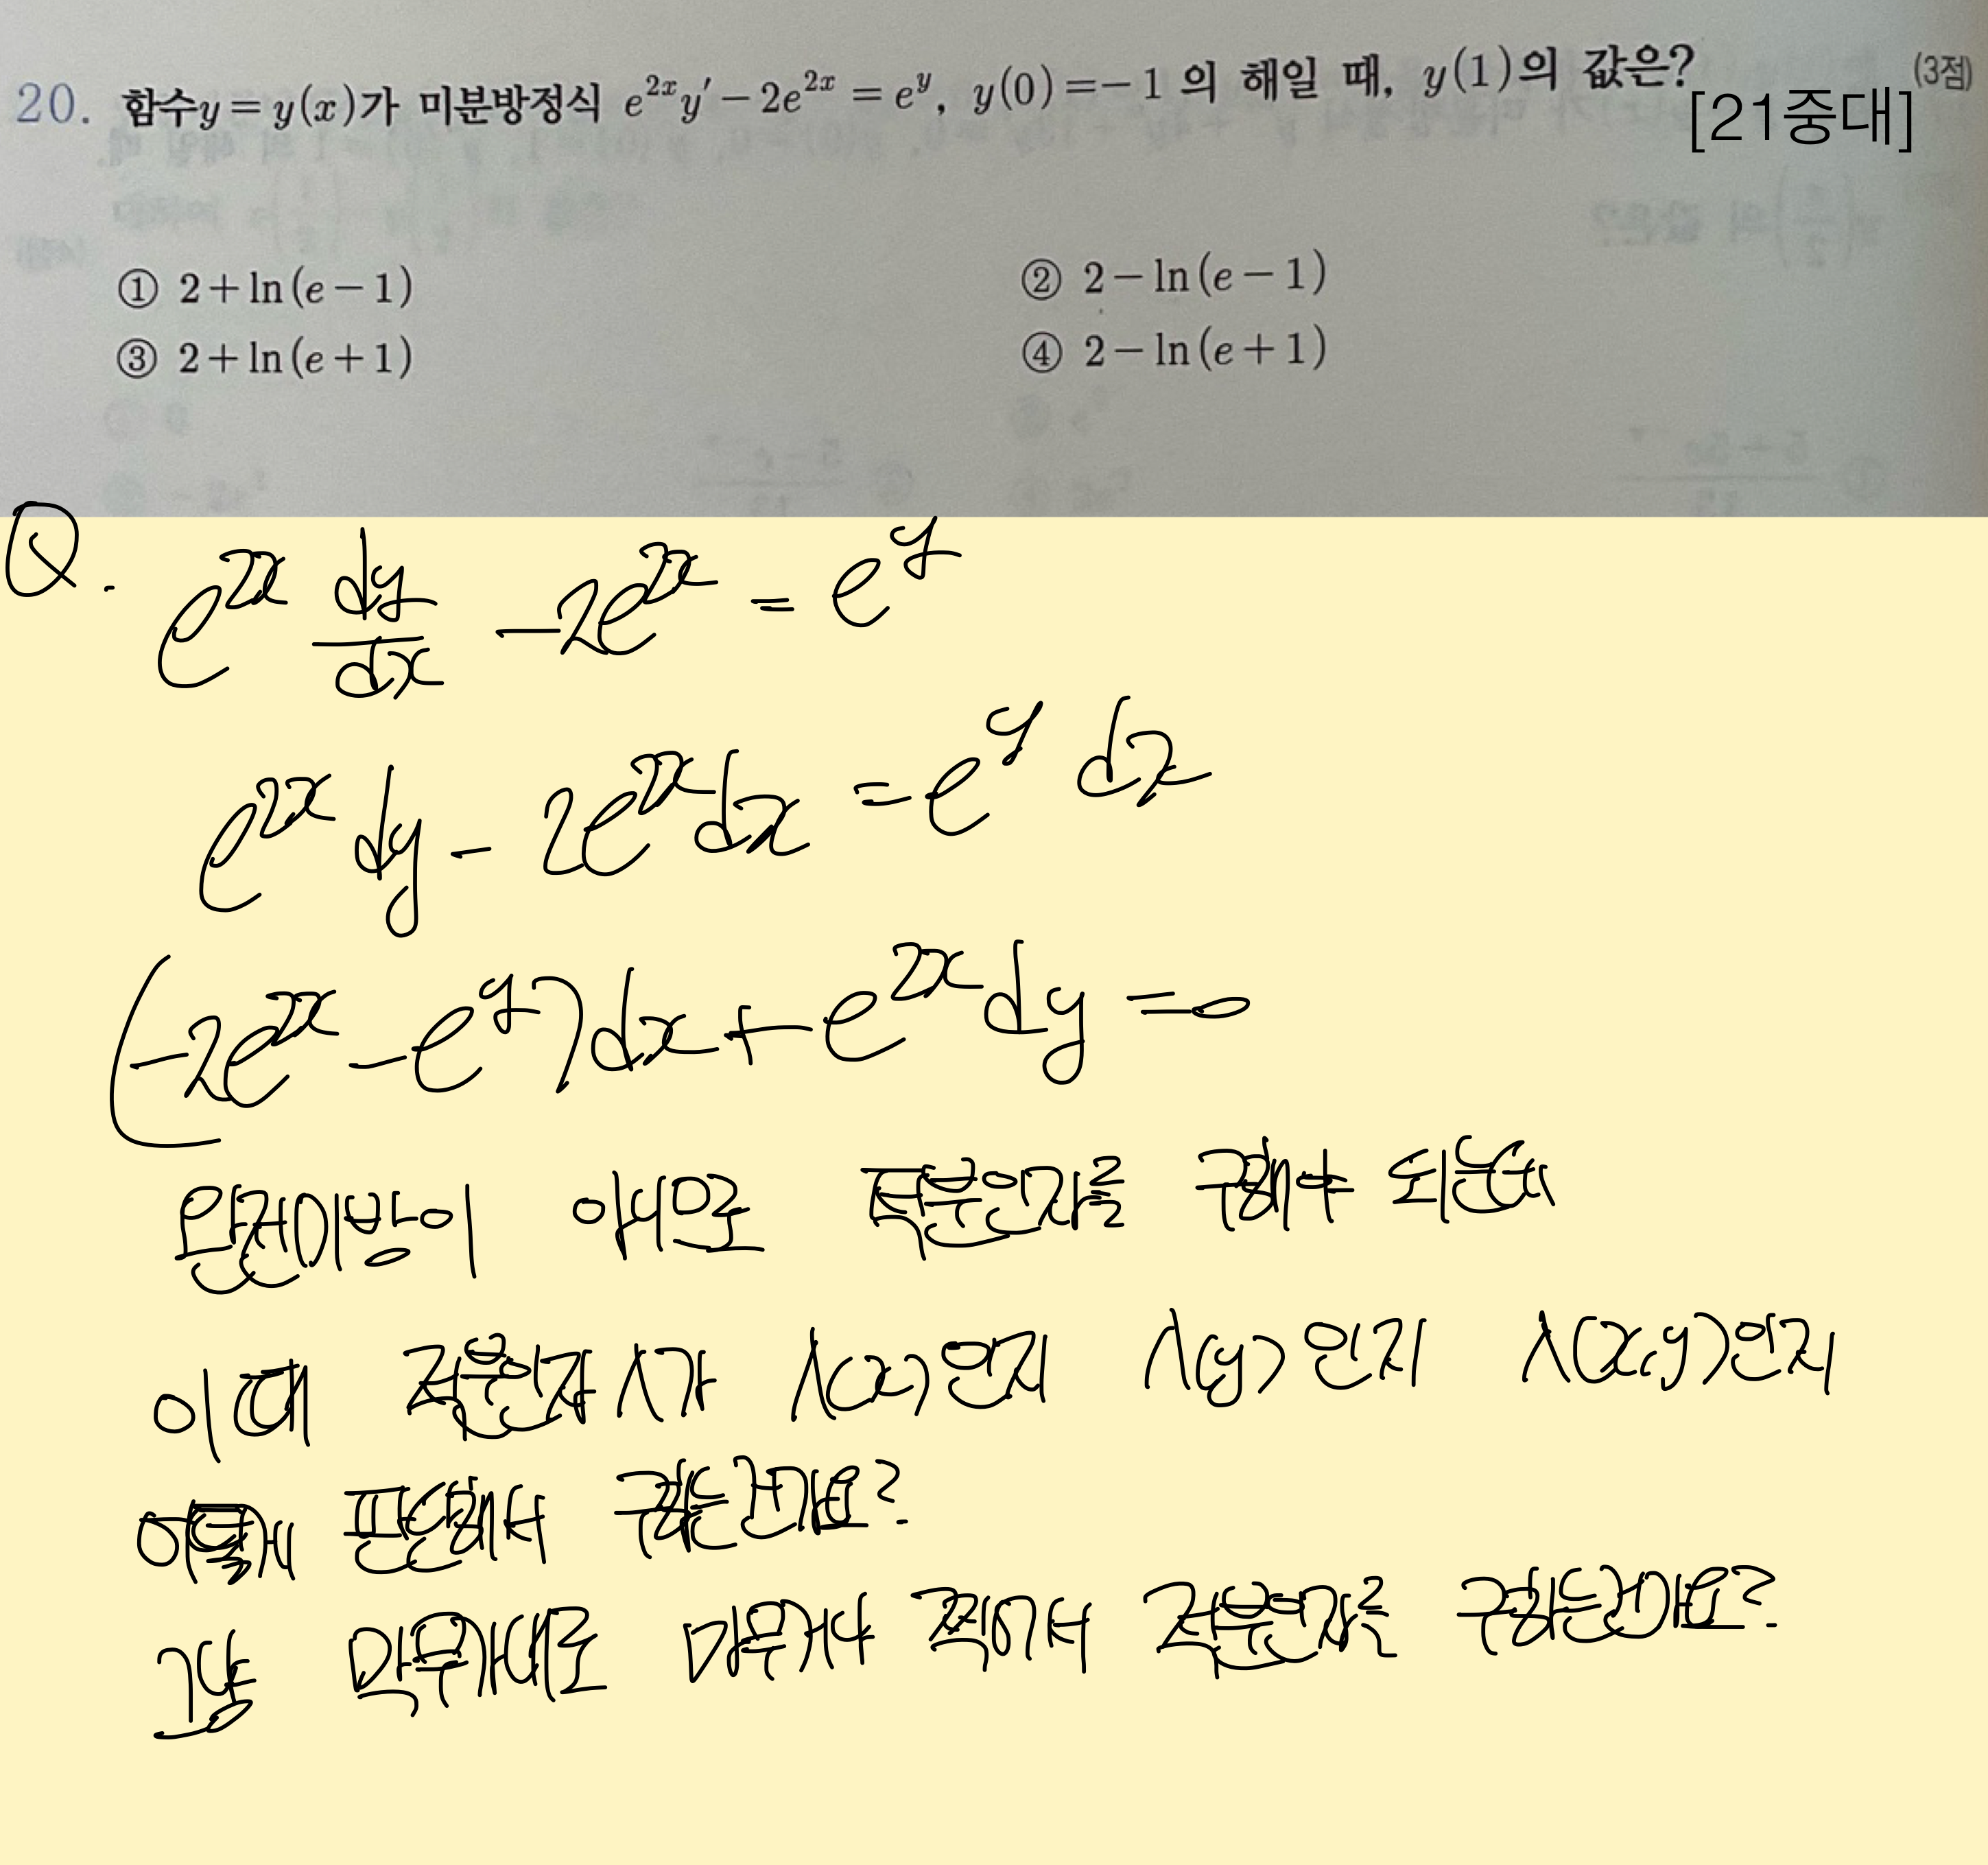 20. 함수 y = y(x)가 미분방정식 e^{2x}y' - 2e^{2x} = e^y, y(0) = -1 의 해일 때, y(1)의 값은? (3점)
[21중대]
① 2+ln(e-1) ② 2-ln(e-1)
③ 2+ln(e+1) ④ 2-ln(e+1)
Q. e^{2x} dy/dx - 2e^{2x} = e^y
e^{2x}dy - 2e^{2x}dx = e^y dx
(-2e^{2x} - e^y)dx + e^{2x}dy = 0
완전미방이 아니므로 적분인자를 구해야 되는데
이때 적분인자 λ가 λ(x)인지 λ(y)인지 λ(x,y)인지
어떻게 판단해서 구하는건가요?
그냥 막무가내로 아무거나 찍어서 적분인자를 구하는건가요?